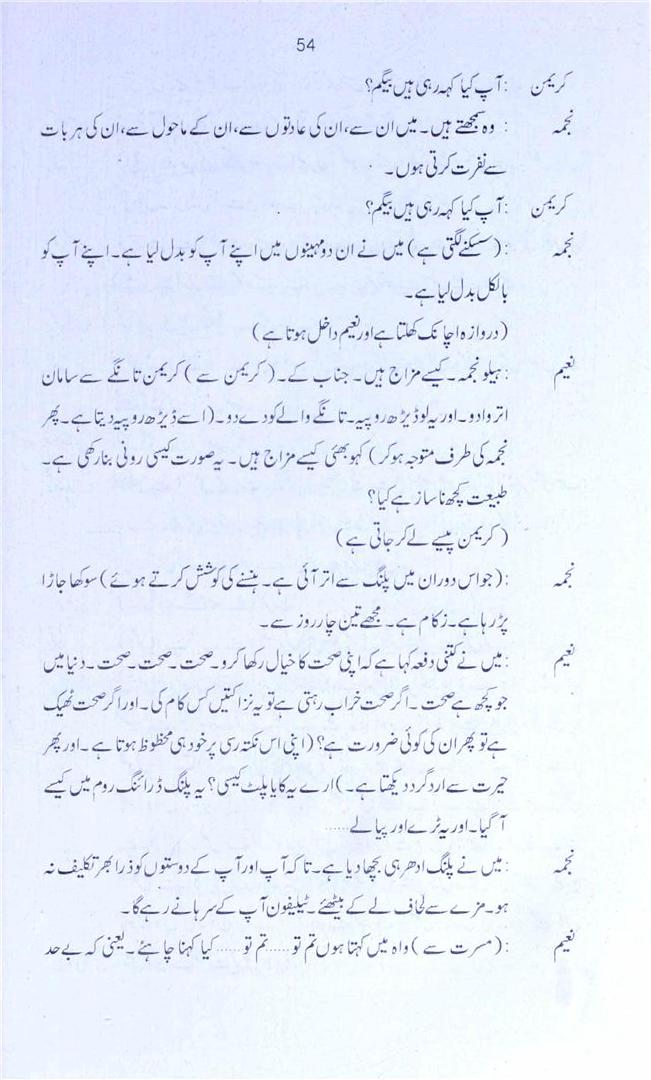 54
کریمن : آپ کیا کہہ رہی ہیں بیگم؟
نجمہ : وہ سمجھتے ہیں۔ میں ان سے، ان کی عادتوں سے، ان کے ماحول سے، ان کی ہر بات
سے نفرت کرتی ہوں۔
کریمن : آپ کیا کہہ رہی ہیں بیگم؟
نجمہ : (سسکنے لگتی ہے) میں نے ان دو مہینوں میں اپنے آپ کو بدل لیا ہے۔ اپنے آپ کو
بالکل بدل لیا ہے۔
(دروازہ اچانک کھلتا ہے اور نعیم داخل ہوتا ہے)
نعیم : ہیلو نجمہ۔ کیسے مزاج ہیں۔ جناب کے۔ (کریمن سے) کریمن تانگے سے سامان
اتروا دو۔ اور یہ لو ڈیڑھ روپیہ۔ تانگے والے کو دے دو۔ (اسے ڈیڑھ روپیہ دیتا ہے۔ پھر
نجمہ کی طرف متوجہ ہو کر) کہو بھئی کیسے مزاج ہیں۔ یہ صورت کیسی رونی بنا رکھی ہے۔
طبیعت کچھ ناساز ہے کیا؟
(کریمن پیسے لے کر جاتی ہے)
نجمہ : (جو اس دوران میں پلنگ سے اتر آئی ہے۔ ہنسنے کی کوشش کرتے ہوئے) سوکھا جاڑا
پڑ رہا ہے۔ زکام ہے۔ مجھے تین چار روز سے۔
نعیم : میں نے کتنی دفعہ کہا ہے کہ اپنی صحت کا خیال رکھا کرو۔ صحت۔ صحت۔ صحت۔ دنیا میں
جو کچھ ہے صحت۔ اگر صحت خراب رہتی ہے تو یہ نزاکتیں کس کام کی۔ اور اگر صحت ٹھیک
ہے تو پھر ان کی کوئی ضرورت ہے؟ (اپنی اس نکتہ رسی پر خود ہی محظوظ ہوتا ہے۔ اور پھر
حیرت سے ارد گرد دیکھتا ہے۔) ارے یہ کایا پلٹ کیسی؟ یہ پلنگ ڈرائنگ روم میں کیسے
آ گیا۔ اور یہ ٹرے اور پیالے......
نجمہ : میں نے پلنگ ادھر ہی بچھا دیا ہے۔ تا کہ آپ اور آپ کے دوستوں کو ذرا بھر تکلیف نہ
ہو۔ مزے سے لحاف لے کے بیٹھئے۔ ٹیلیفون آپ کے سرہانے رہے گا۔
نعیم : (مسرت سے) واہ میں کہتا ہوں تم تو...... تم تو...... کیا کہنا چاہئے۔ یعنی کہ بے حد